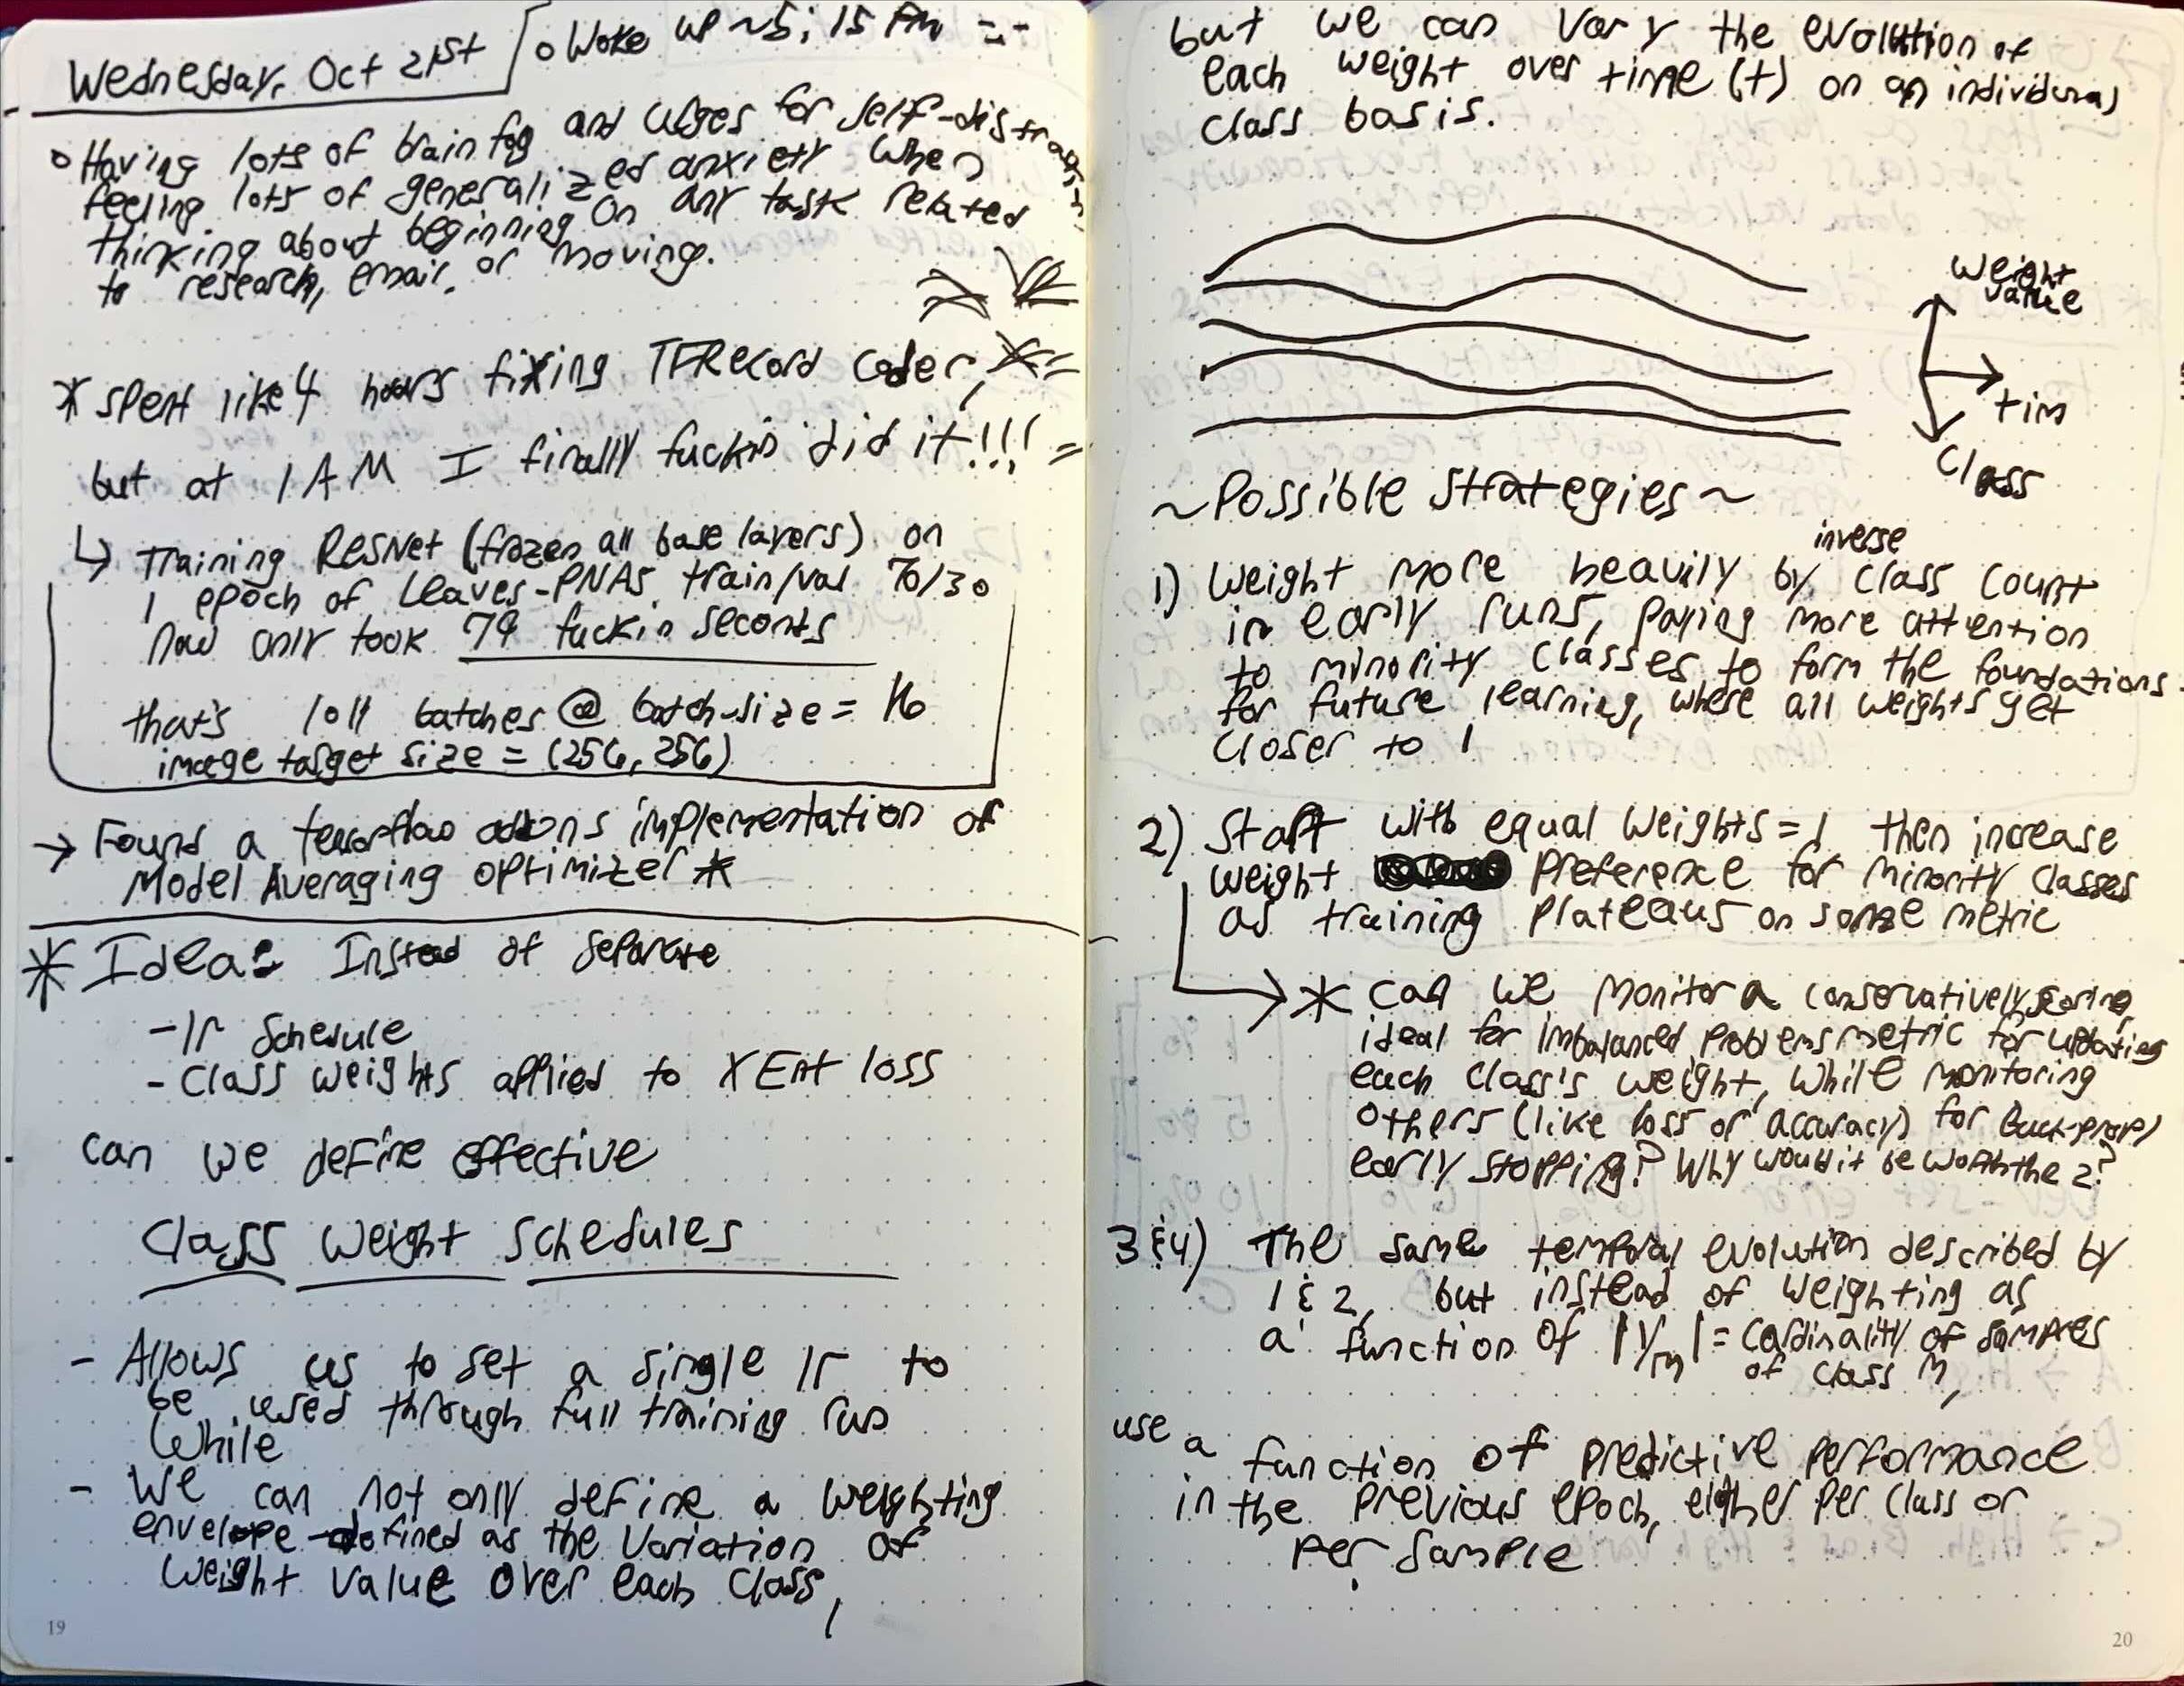 Wednesday, Oct 21st
o Woke up ~5:15 PM --
o Having lots of brain fog and urges for self-distraction
feeling lots of generalized anxiety when
thinking about beginning on any task related
to research, email, or moving.
* spent like 4 hours fixing TFRecord coder,
but at 1 AM I finally fuckin did it!!!
↳ Training ResNet (frozen all base layers) on
1 epoch of Leaves-PNAS train/val 70/30
now only took 79 fuckin seconts
that's 1011 batches @ batch-size = 16
image target size = (256, 256)
→ Found a tensorflow addons implementation of
Model Averaging optimizer *
* Idea: Instead of separate
- lr schedule
- class weights applied to XEnt loss
can we define effective
Class Weight Schedules
- Allows us to set a single lr to
be used through full training run
while
- We can not only define a weighting
envelope - defined as the variation of
weight value over each class,
19
but we can vary the evolution of
each weight over time (t) on an individual
class basis.
weight
value
tim
Class
~Possible Strategies~
inverse
1) Weight more heavily by class count
in early runs, paying more attention
to minority classes to form the foundations
for future learning, where all weights get
closer to 1
2) Start with equal weights = 1 then increase
weight preference for minority classes
as training plateaus on some metric
→ * can we monitor a conservatively scoring,
ideal for imbalanced problems metric for updating
each class's weight, while monitoring
others (like loss or accuracy) for back-prop/
early stopping? Why would it be worth the 2?
3 & 4) The same temporal evolution described by
1 & 2, but instead of weighting as
a function of |Ym| = cardinality of samples
of class M,
use a function of predictive performance
in the previous epoch, either per class or
per sample
20